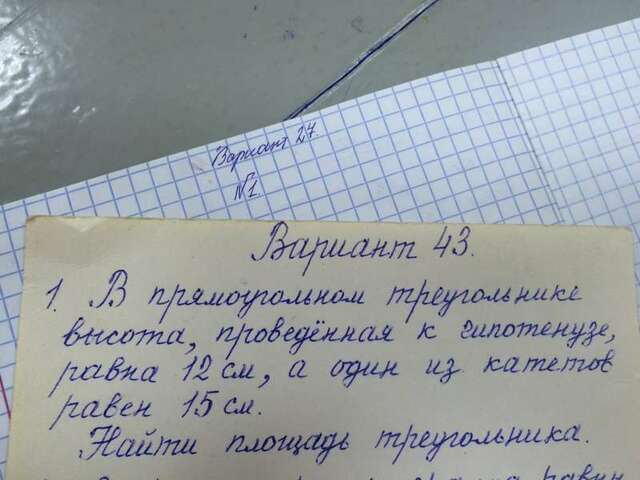 Вариант 27
№1.
Вариант 43.
1. В прямоугольном треугольнике
высота, проведённая к гипотенузе,
равна 12 см, а один из катетов
равен 15 см.
Найти площадь треугольника.